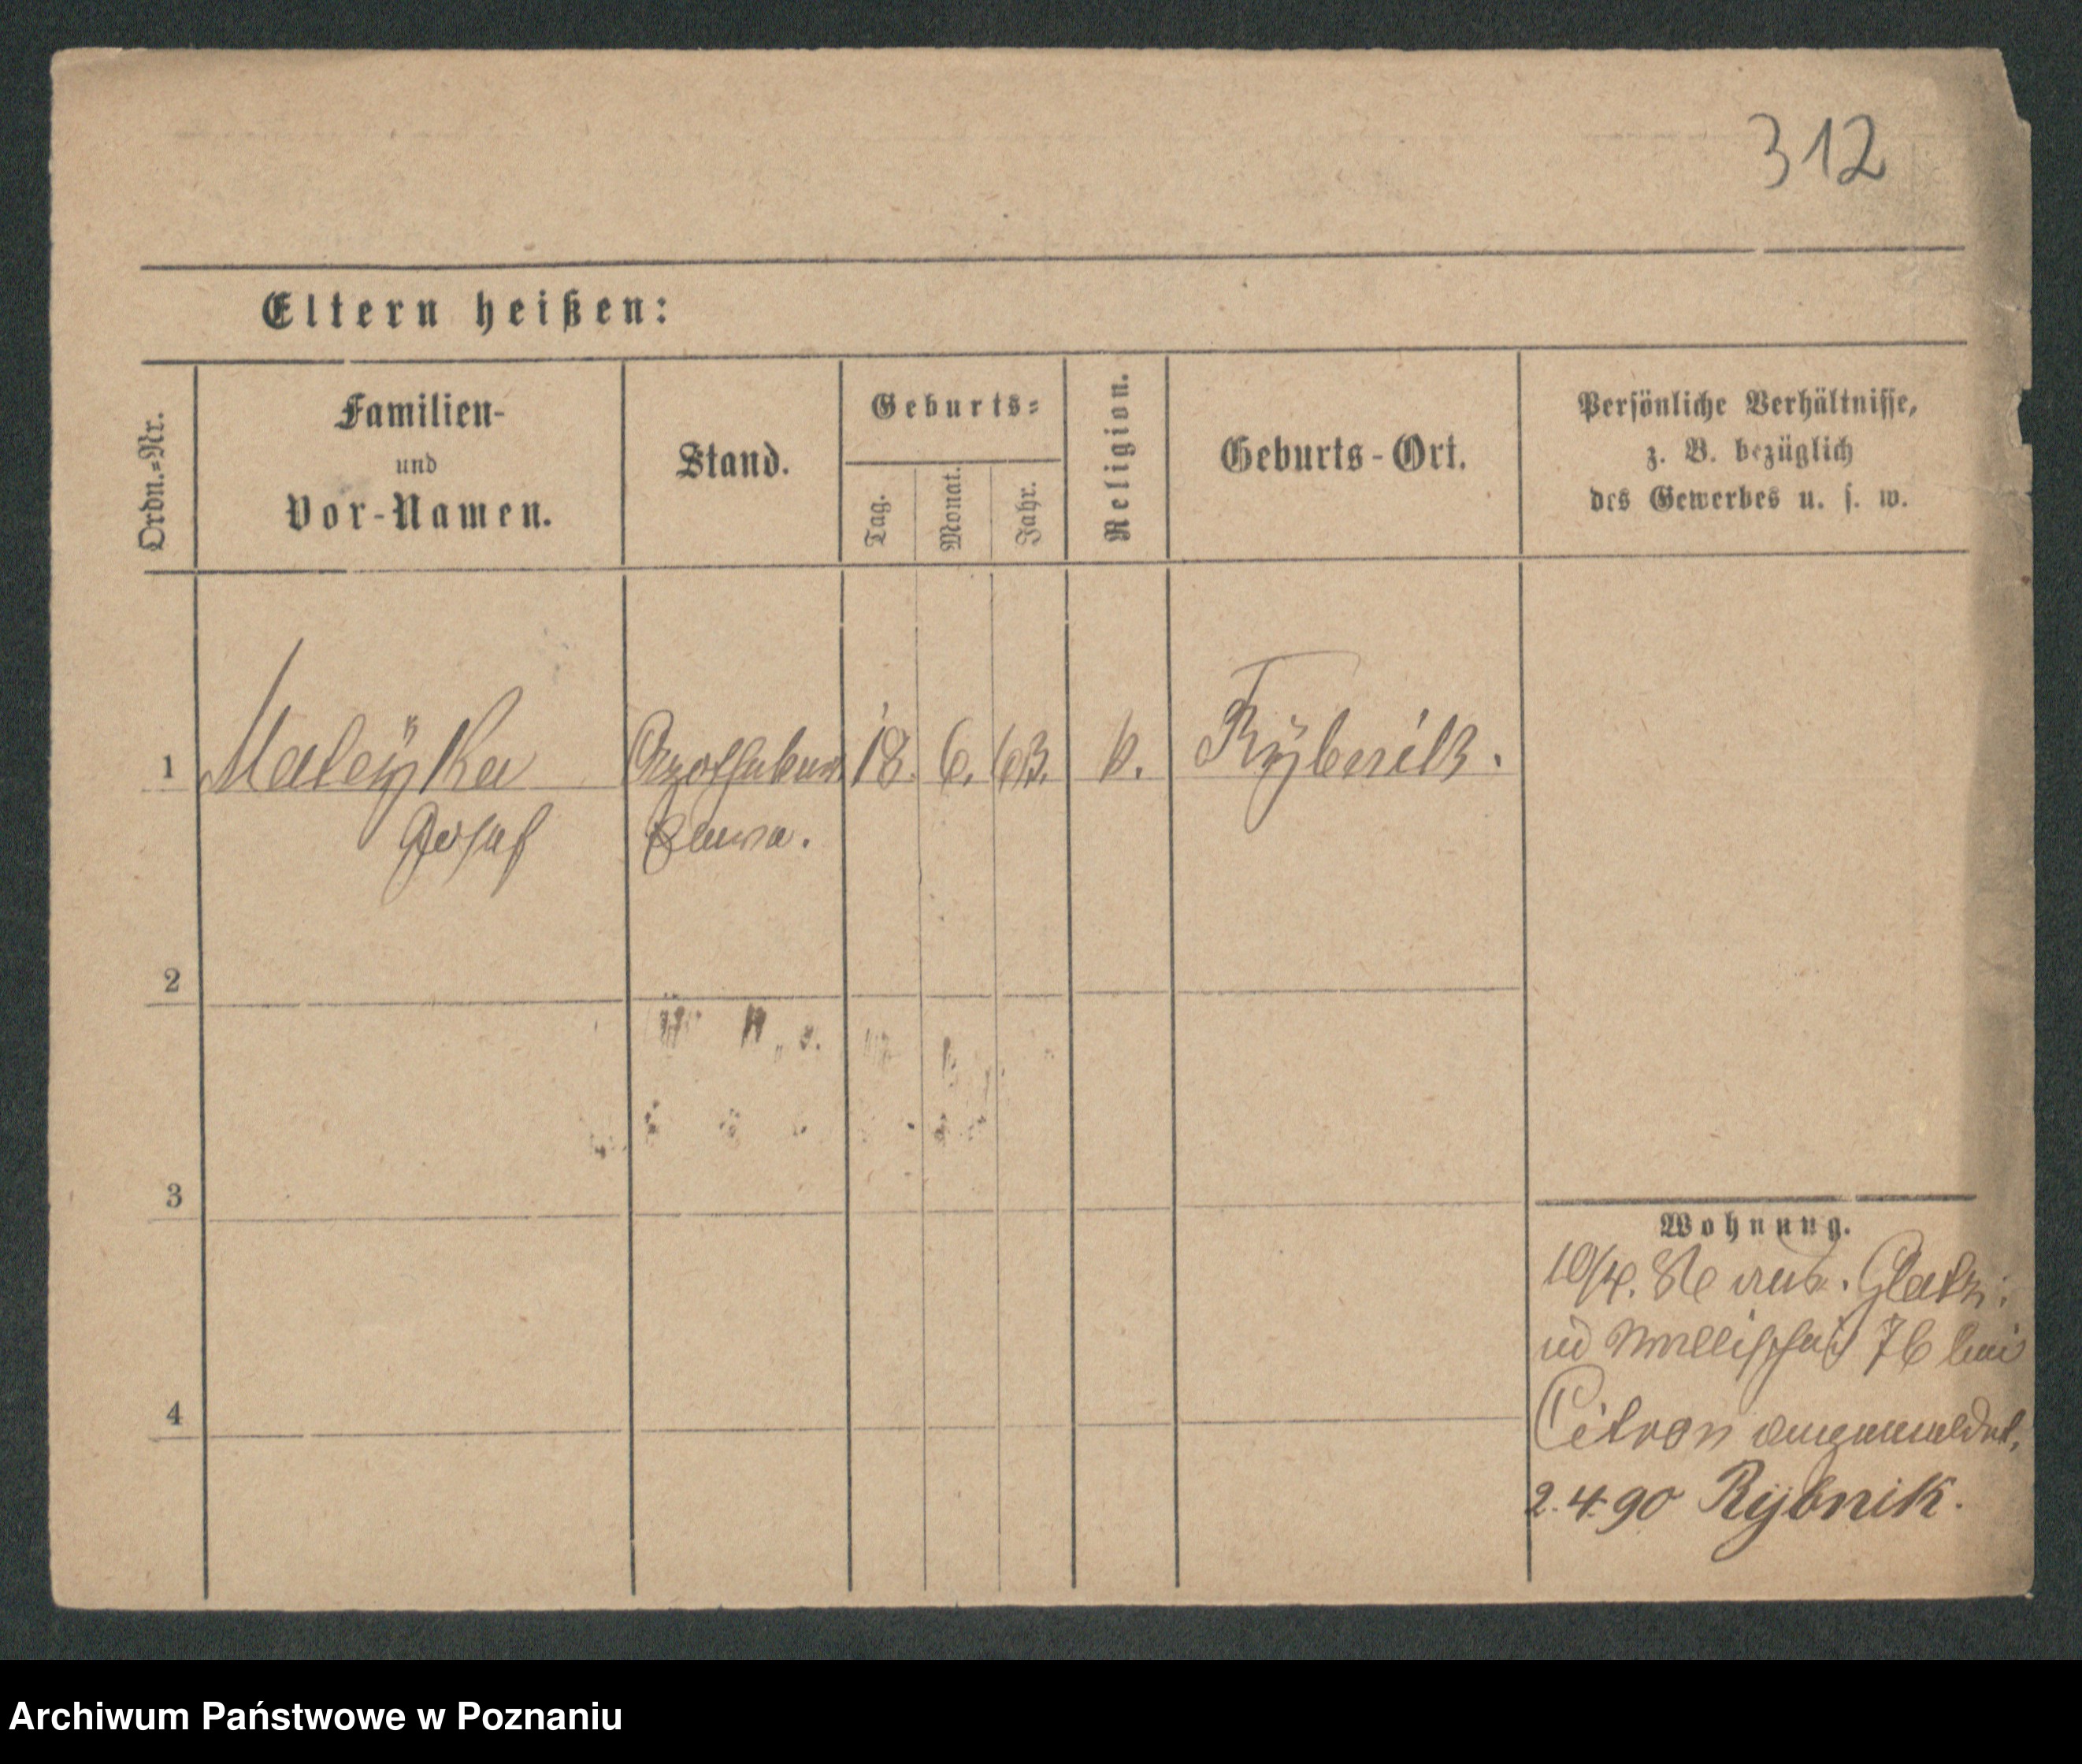 312
Eltern heißen:
Ordn.=Nr.
Familien-
und
Vor-Namen.
Stand.
Geburts=
Tag.
Monat.
Jahr.
Religion.
Geburts-Ort.
Persönliche Verhältnisse,
z. B. bezüglich
des Gewerbes u. s. w.
1 Mateÿka 18. 6. 63. k. Rÿbnik.
Josef
2
3
4
Wohnung.
10/4. 86 aus. Glatz.
in Wallischei 76 bei
Citron angemeldet.
2.4.90 Rybnik.
Archiwum Państwowe w Poznaniu